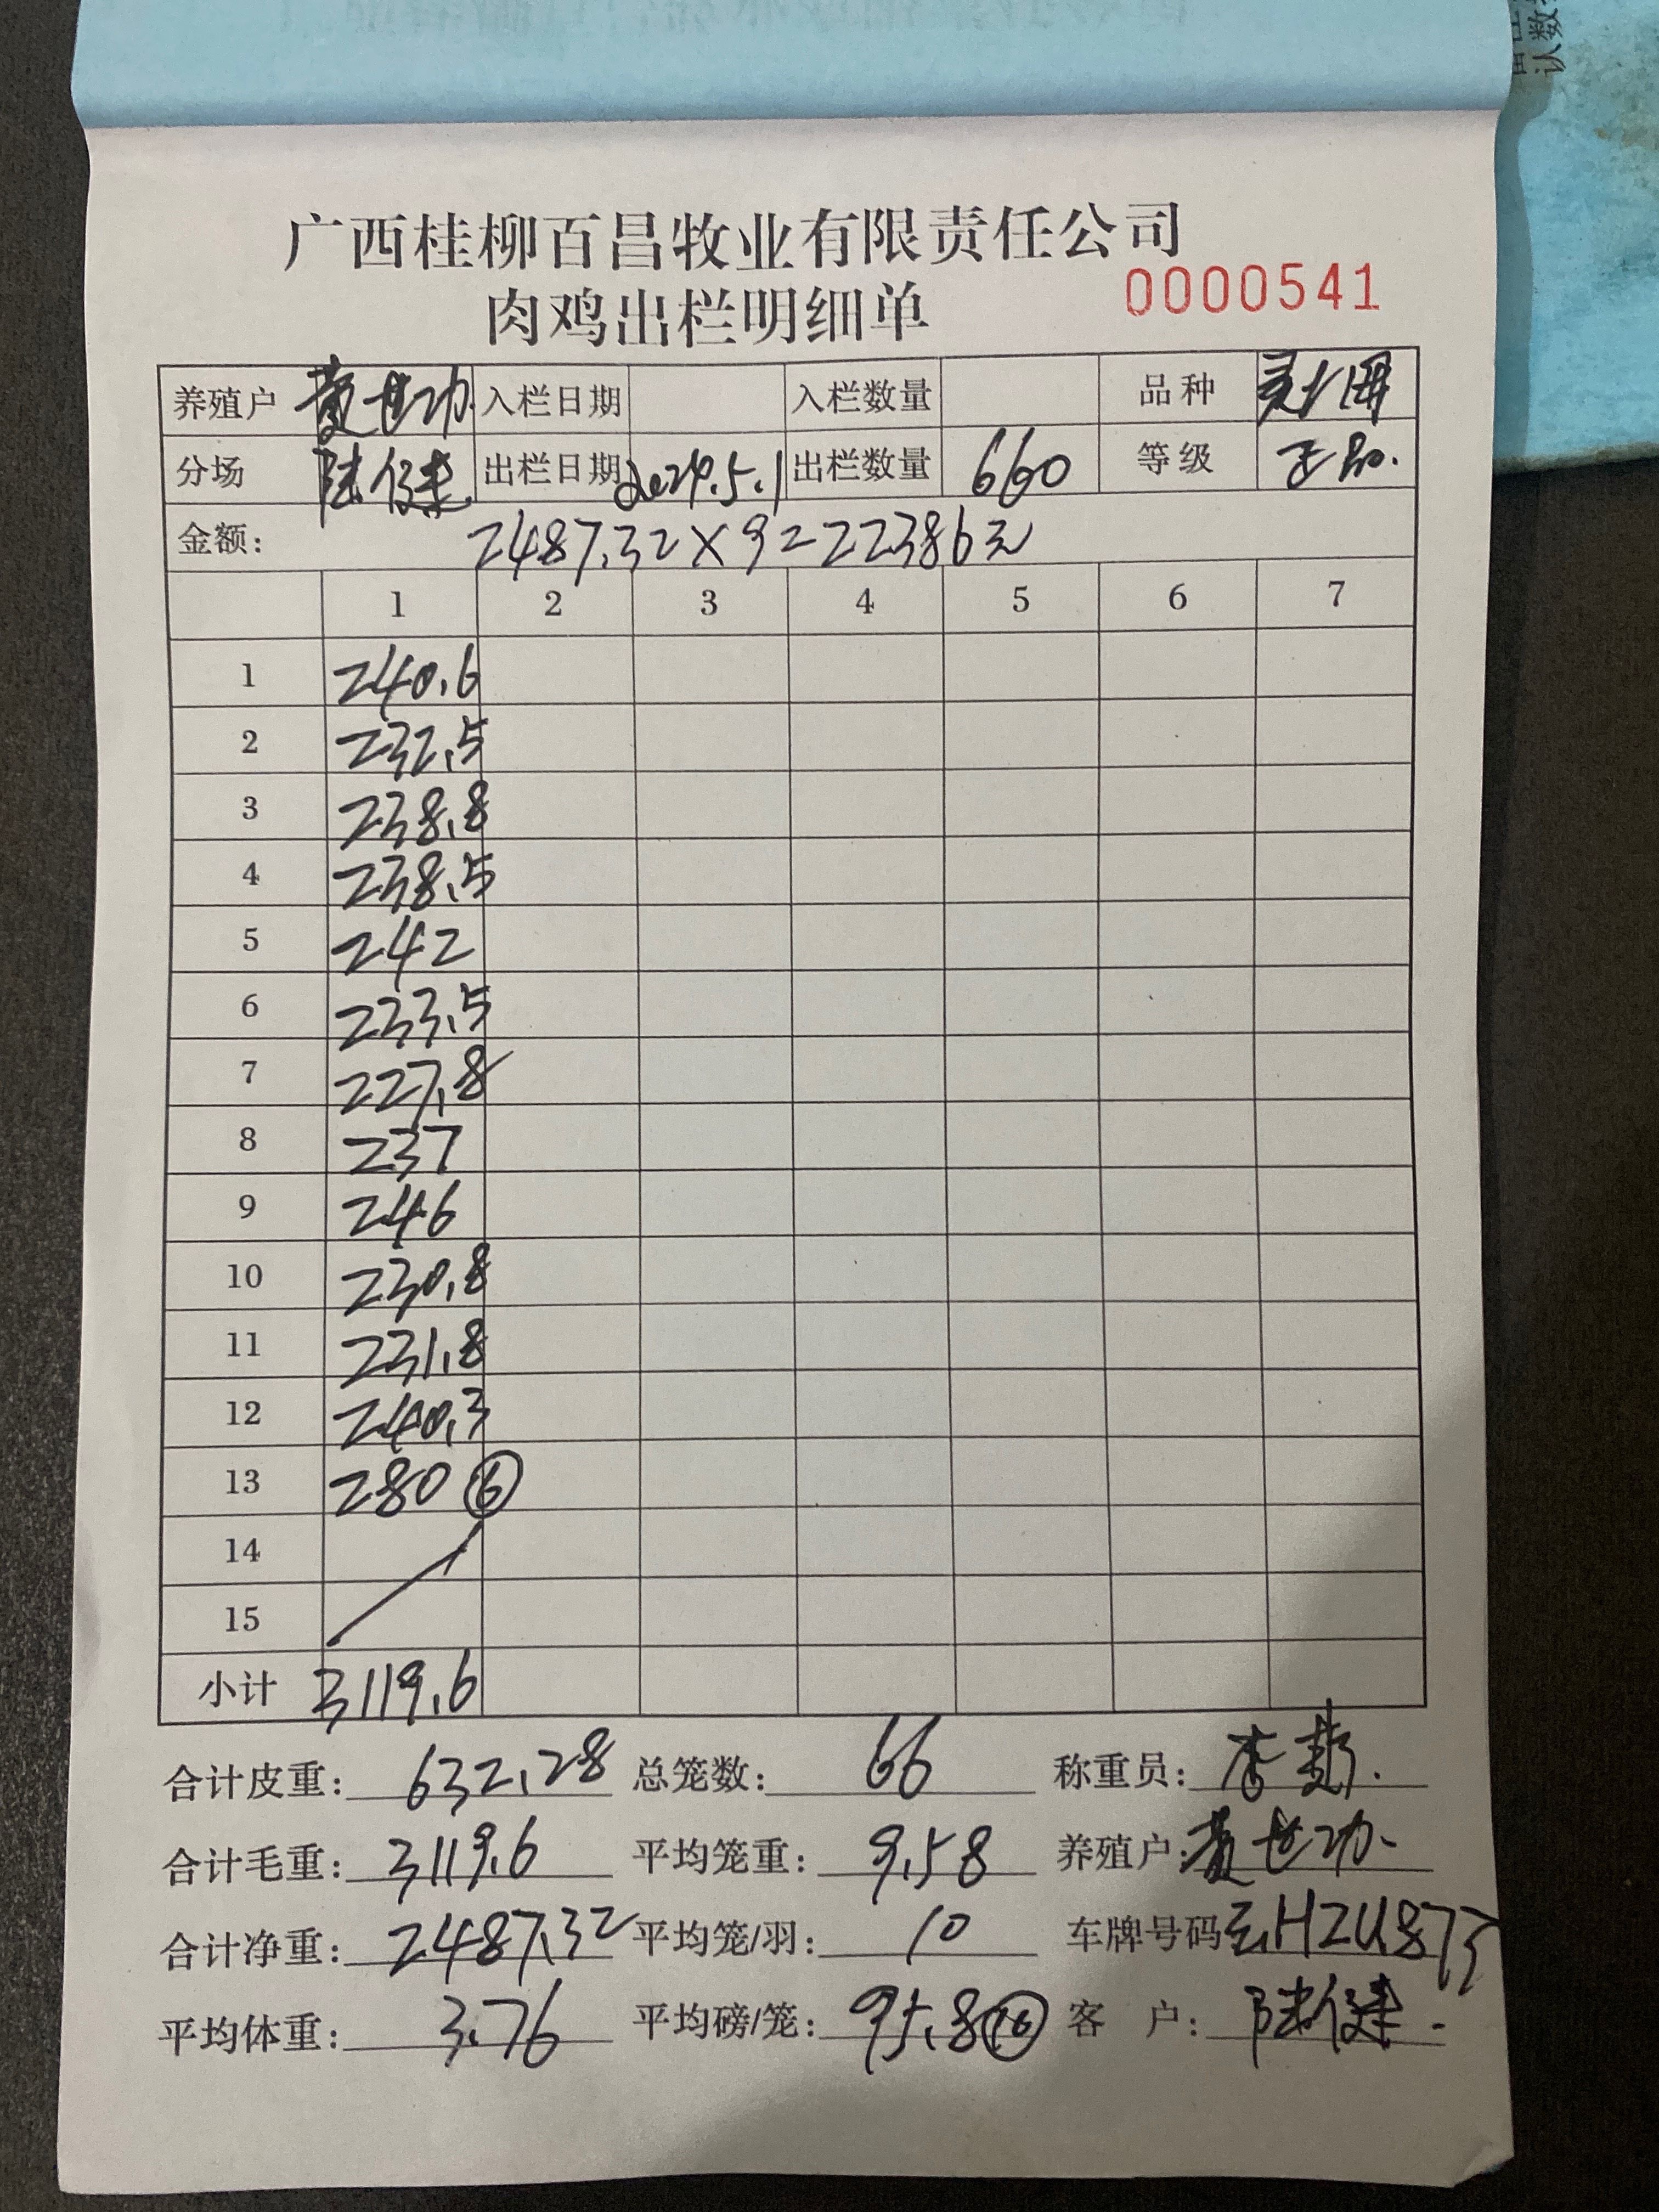 广西桂柳百昌牧业有限责任公司
肉鸡出栏明细单 0000541
养殖户 黄世功 入栏日期 入栏数量 品种
分场 陆健 出栏日期 2024.5.1 出栏数量 660 等级 正品.
金额: 2487.32×9=22386元
1 2 3 4 5 6 7
1 240.6
2 232.5
3 238.8
4 238.5
5 242
6 233.5
7 227.8
8 237
9 246
10 230.8
11 231.8
12 240.3
13 280 ⑥
14
15
小计 3119.6
合计皮重: 632.28 总笼数: 66 称重员: 李
合计毛重: 3119.6 平均笼重: 9.58 养殖户: 黄世功
合计净重: 2487.32 平均笼/羽: 10 车牌号码
平均体重: 3.76 平均磅/笼: 95.8 客 户: 陆健
认数